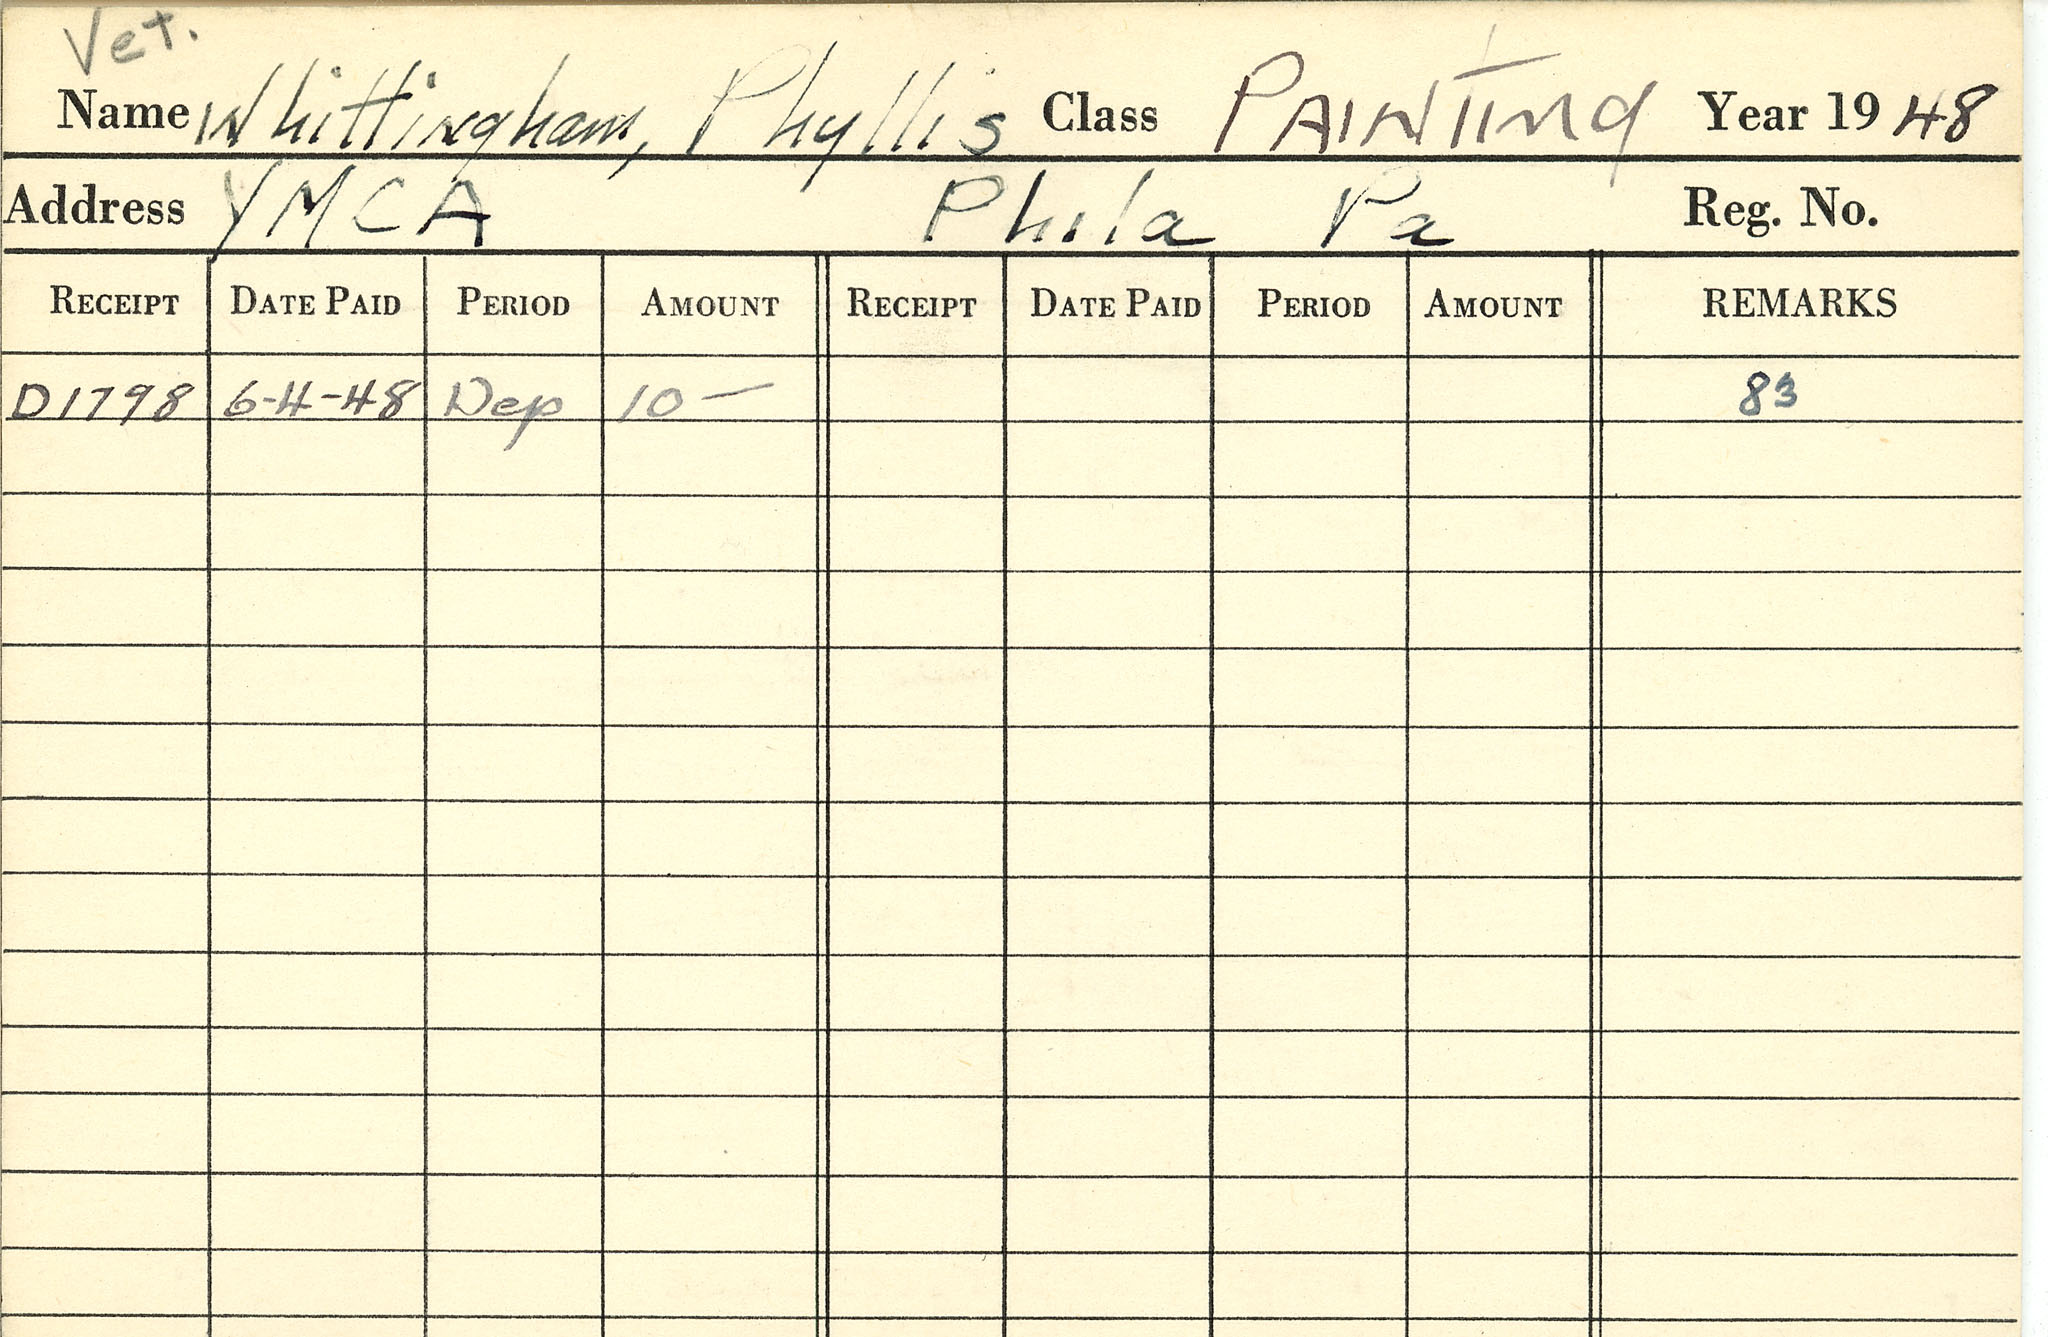 Vet.
Name Whittingham, Phyllis Class PAINTING Year 1948
Address YMCA Phila Pa Reg. No.
RECEIPT DATE PAID PERIOD AMOUNT RECEIPT DATE PAID PERIOD AMOUNT REMARKS
D1798 6-4-48 Dep 10 — 83